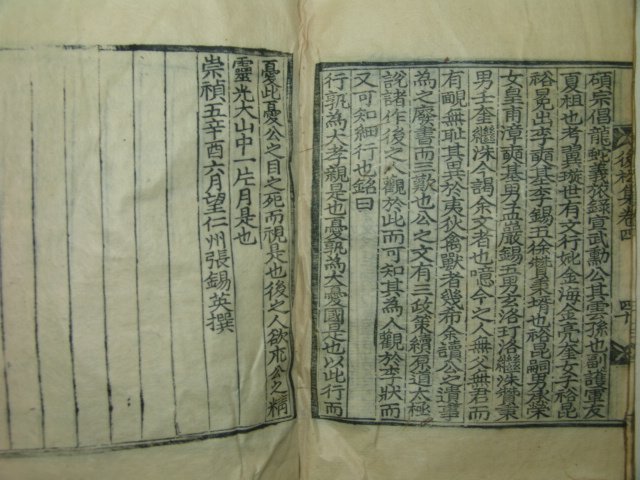 碩宗倡龍蛇義旅錄宣武勳公其雲孫也副護軍友
夏祖也者翼璇世有文行妣金海金亮奎女子裕昆
裕冕出李頤其李錫五徐贊秉婿也裕昆嗣男承榮
女皇甫漳頤基男孟巖錫五男玄洛玎洛繼洙贊秉
男士奎繼洙今謁余文者也噫今之人無父無君而
有靦無恥其異於夷狄禽獸者幾希余讀公之遺事
為之廢書而三歎也公之文有三政策續原道太極
說諸作後之人觀於此而可知其為人觀於李狀而
又可知細行也銘曰
行孰為大孝親是也憂孰為大憂國是也以此行而
憂此憂公之目之死而視是也後之人欲求公之精
靈光大山中一片月是也
崇禎五辛酉六月望仁州張錫英撰
集卷四